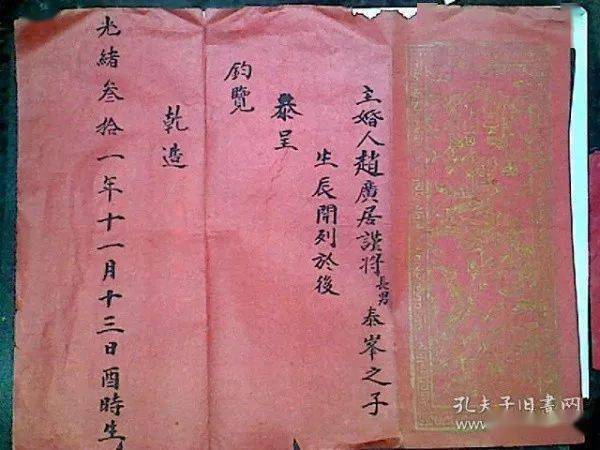 主婚人趙廣居謹將長男泰峯之子
生辰開列於後
恭呈
鈞覽
乾造
光緒叄拾一年十一月十三日酉時生
孔夫子旧書网